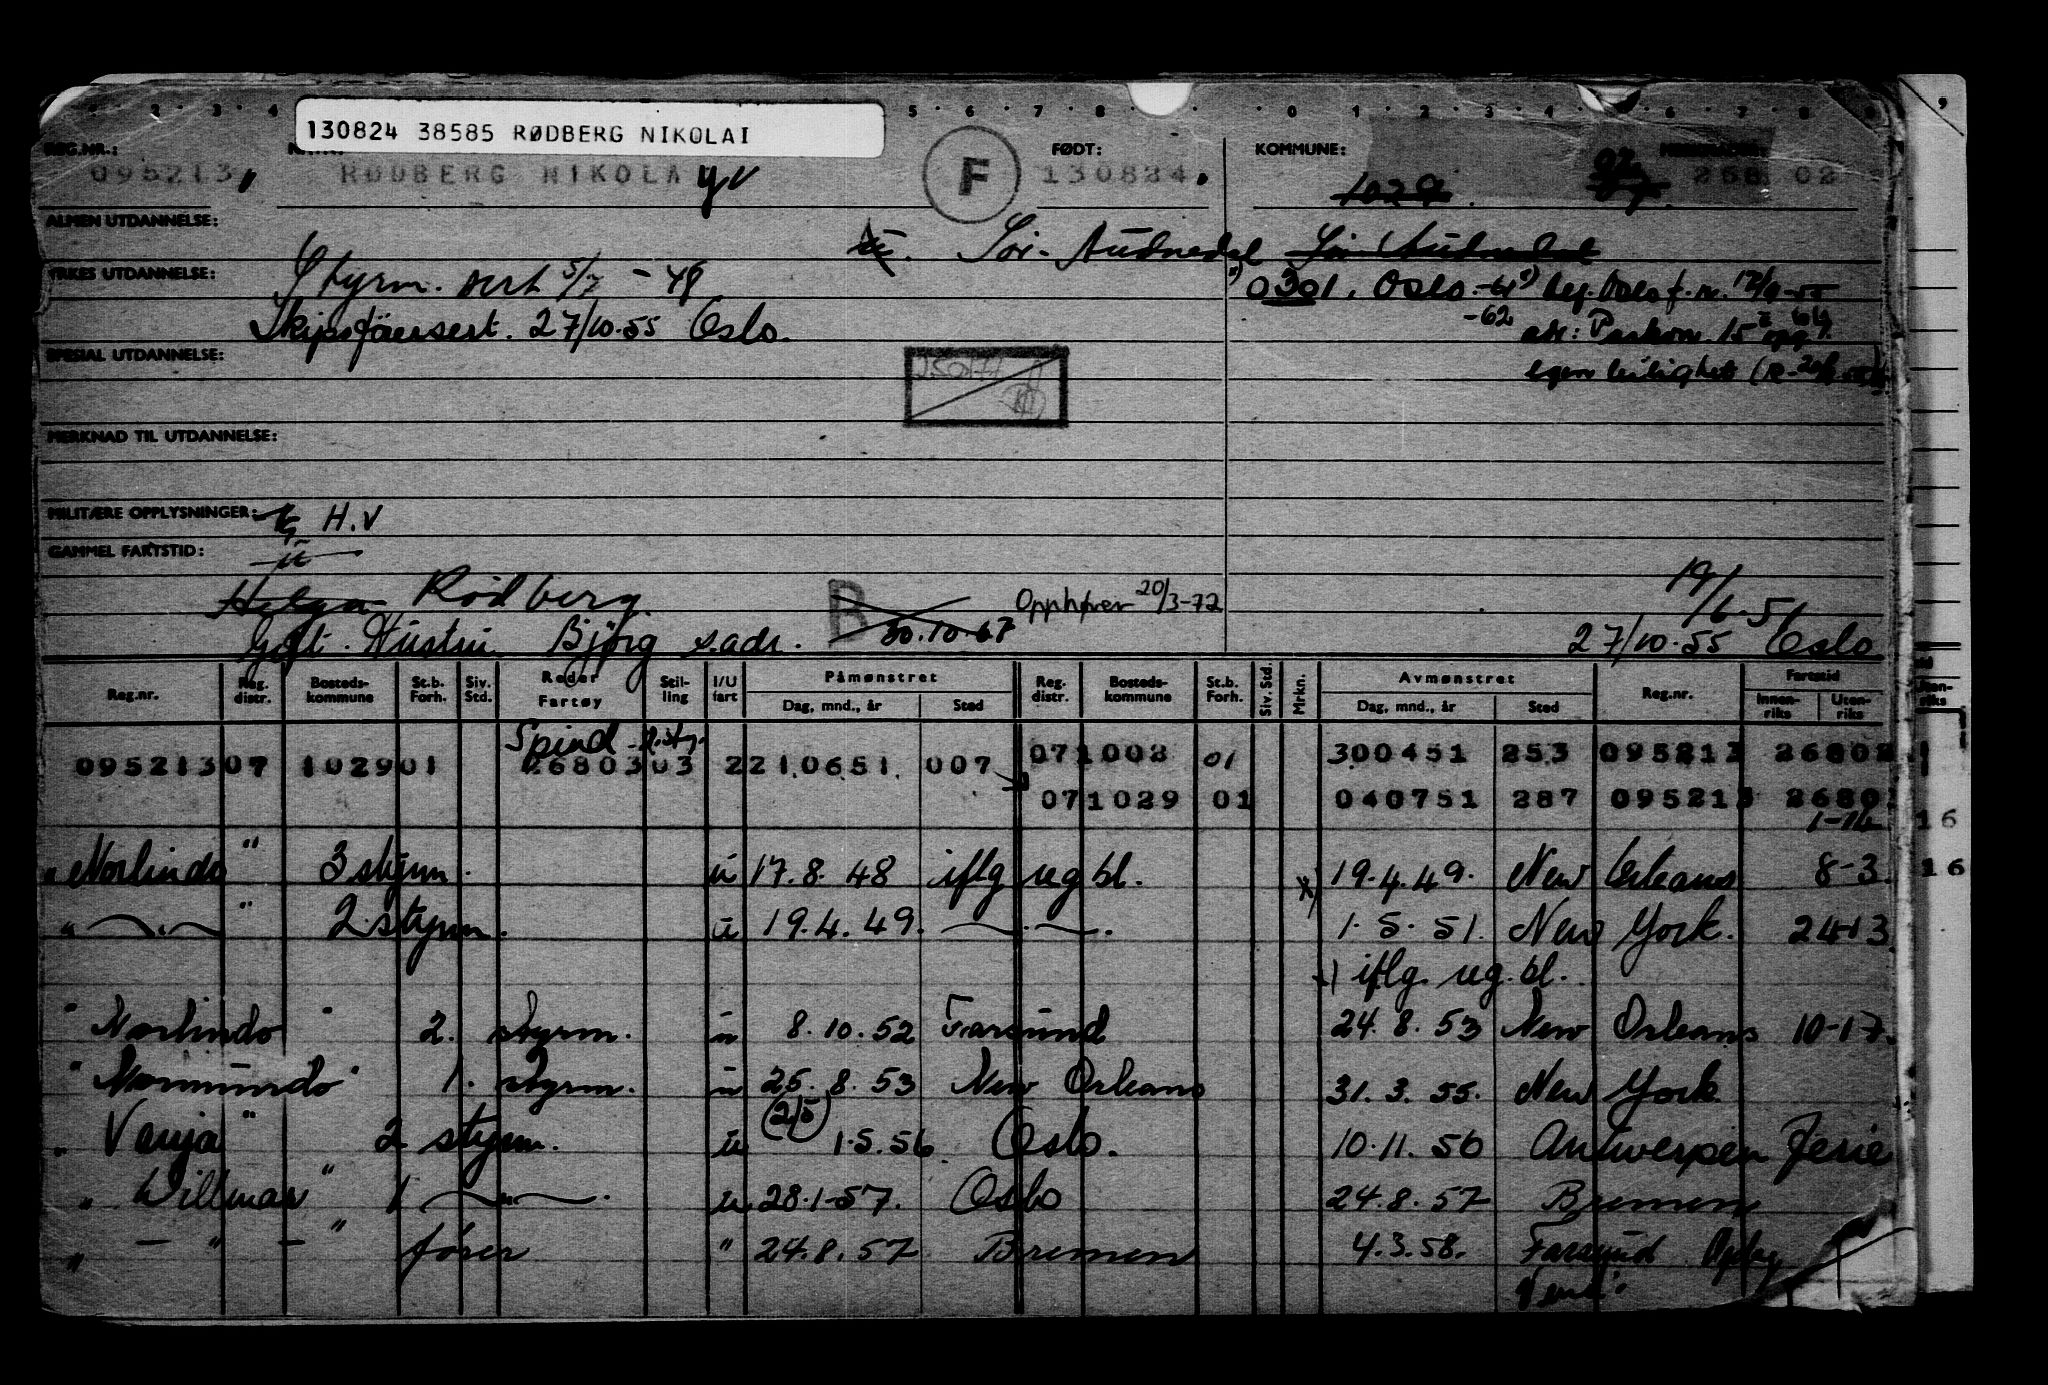 130824 38585 RØDBERG NIKOLAI
REG.NR.:
FØDT:
KOMMUNE:
095213
RØDBERG NIKOLA
F
130824
1029
268 02
ALMEN UTDANNELSE:
Sør-Audnedal
YRKES UTDANNELSE:
Styrm. sert 5/7 - 48
0301, Oslo.
Skipsførersert. 27/10.55 Oslo.
-62
SPESIAL UTDANNELSE:
egen leilighet
MERKNAD TIL UTDANNELSE:
MILITÆRE OPPLYSNINGER:
H.V
GAMMEL FARTSTID:
Helga Rødberg.
B
30.10.67
Opphører 20/3-72
19/6-51
Gift. Hustru Bjørg s.adr.
27/10.55 Oslo
Reg.nr. Reg. distr. Bosteds-kommune St.b. Forh. Siv. Std. Reder Fartøy Stil-ling I/U fart Påmønstret Dag, mnd., år Sted Reg. distr. Bosteds-kommune St.b. Forh. Siv. Std. Mrkn. Avmønstret Dag, mnd., år Sted Reg.nr. Fartstid Innen-riks Uten-riks
Spind
095213 07 1029 01 26803 03 2 210651 007 07 1002 01 300451 253 095213 26802
07 1029 01 040751 287 095213 2680
16
"Norlindo" 3 styrm. u 17.8.48 iflg reg bl. x) 19.4.49. New Orleans 8-3
16
" — " — " 2 styrm. u 19.4.49. — " — . 1.5.51. New York. 24-13
x) iflg. reg. bl.
"Norlindo" 2. styrm. u 8.10.52 Farsund 24.8.53 New Orleans 10-17.
"Normundo" 1. styrm. u 25.8.53 New Orleans 31.3.55. New York
(2/5)
"Vanja" 2 styrm. u 1.5.56. Oslo. 10.11.56 Antwerpen Ferie
"Willmar" 1 — " — . u 28.1-57. Oslo 24.8.57 Bremen
" — " — " fører " 24.8.57 Bremen 4.3.58. Farsund